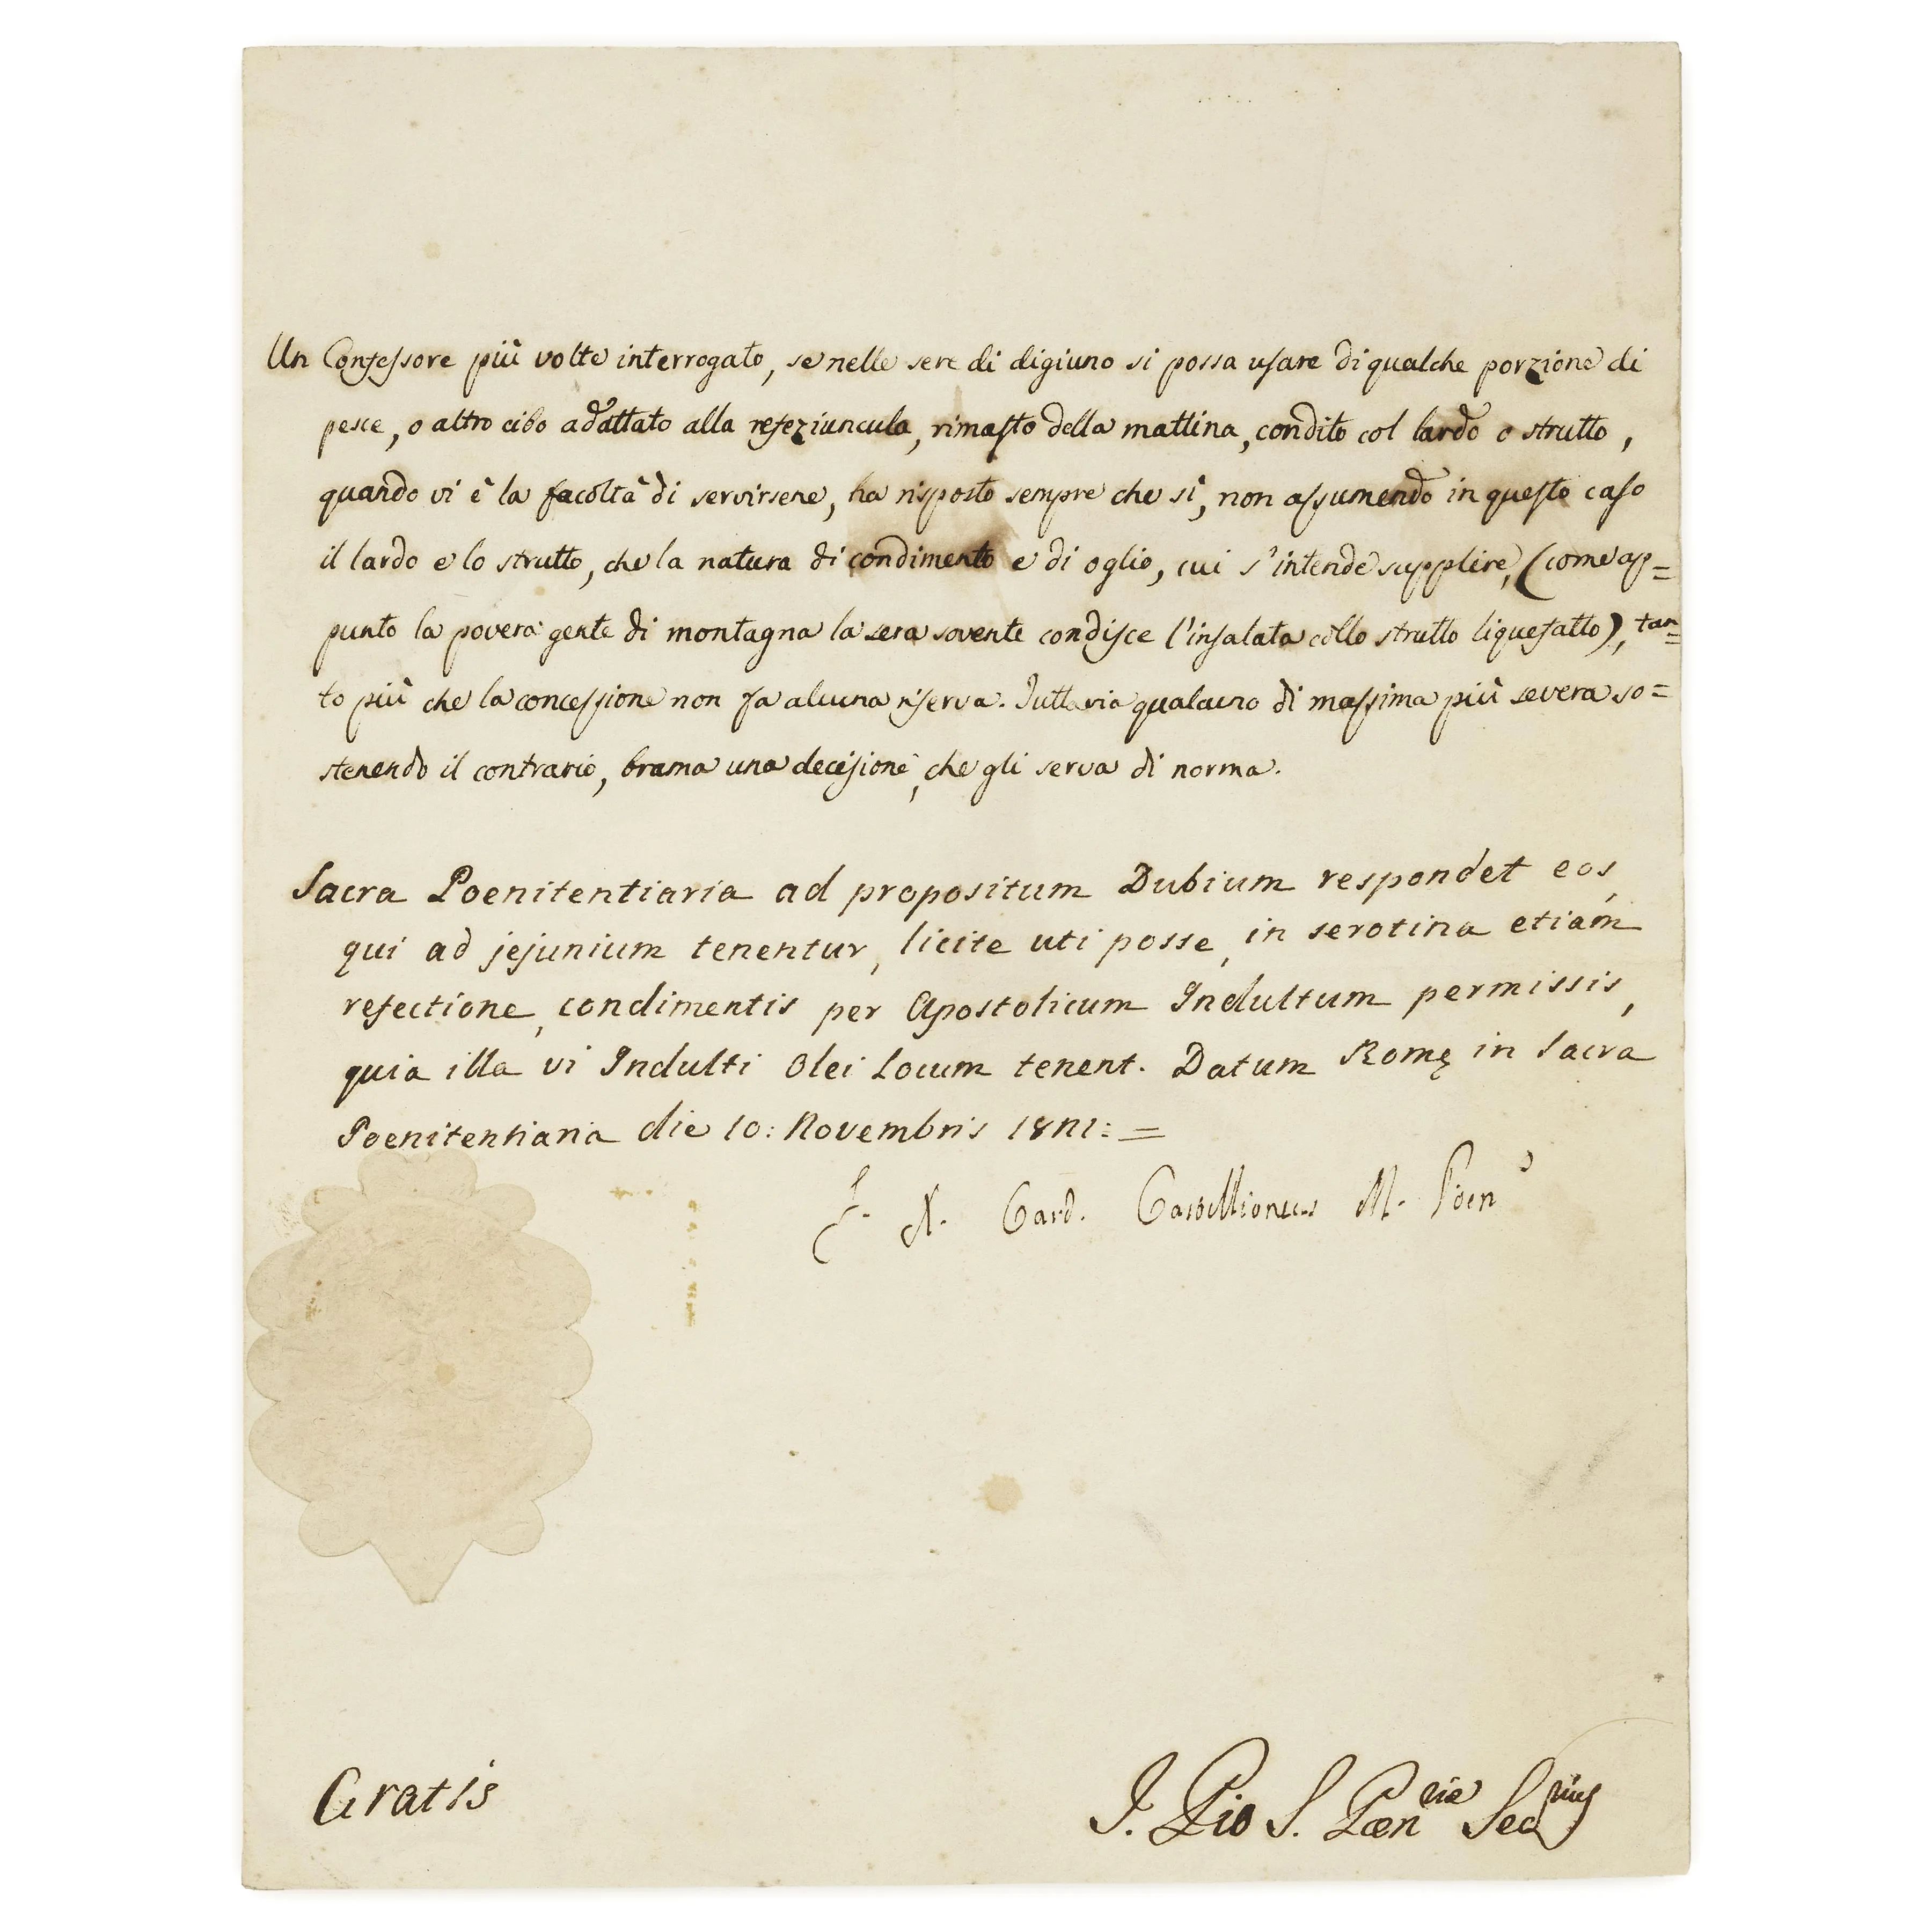 Un Confessore più volte interrogato, se nelle sere di digiuno si possa usare di qualche porzione di
pesce, o altro cibo adattato alla refeziuncula, rimasto della mattina, condito col lardo o strutto,
quando vi è la facoltà di servirsene, ha risposto sempre che sì, non assumendo in questo caso
il lardo e lo strutto, che la natura di condimento e di oglio, cui s'intende supplire, (come ap=
punto la povera gente di montagna la sera sovente condisce l'insalata collo strutto liquefatto), tan=
to più che la concessione non fa alcuna riserva. Tuttavia qualcuno di massima più severa so=
stenendo il contrario, brama una decisione, che gli serva di norma.
Sacra Poenitentiaria ad propositum Dubium respondet eos,
qui ad jejunium tenentur, licite uti posse, in serotina etiam
refectione, condimentis per Apostolicum Indultum permissis,
quia illa vi Indulti Olei Locum tenent. Datum Romę in Sacra
Poenitentiaria die 10: Novembris :=
F. X. Card. M. Poen
Gratis
J. Pio S. Pæn^riæ Sec^rius